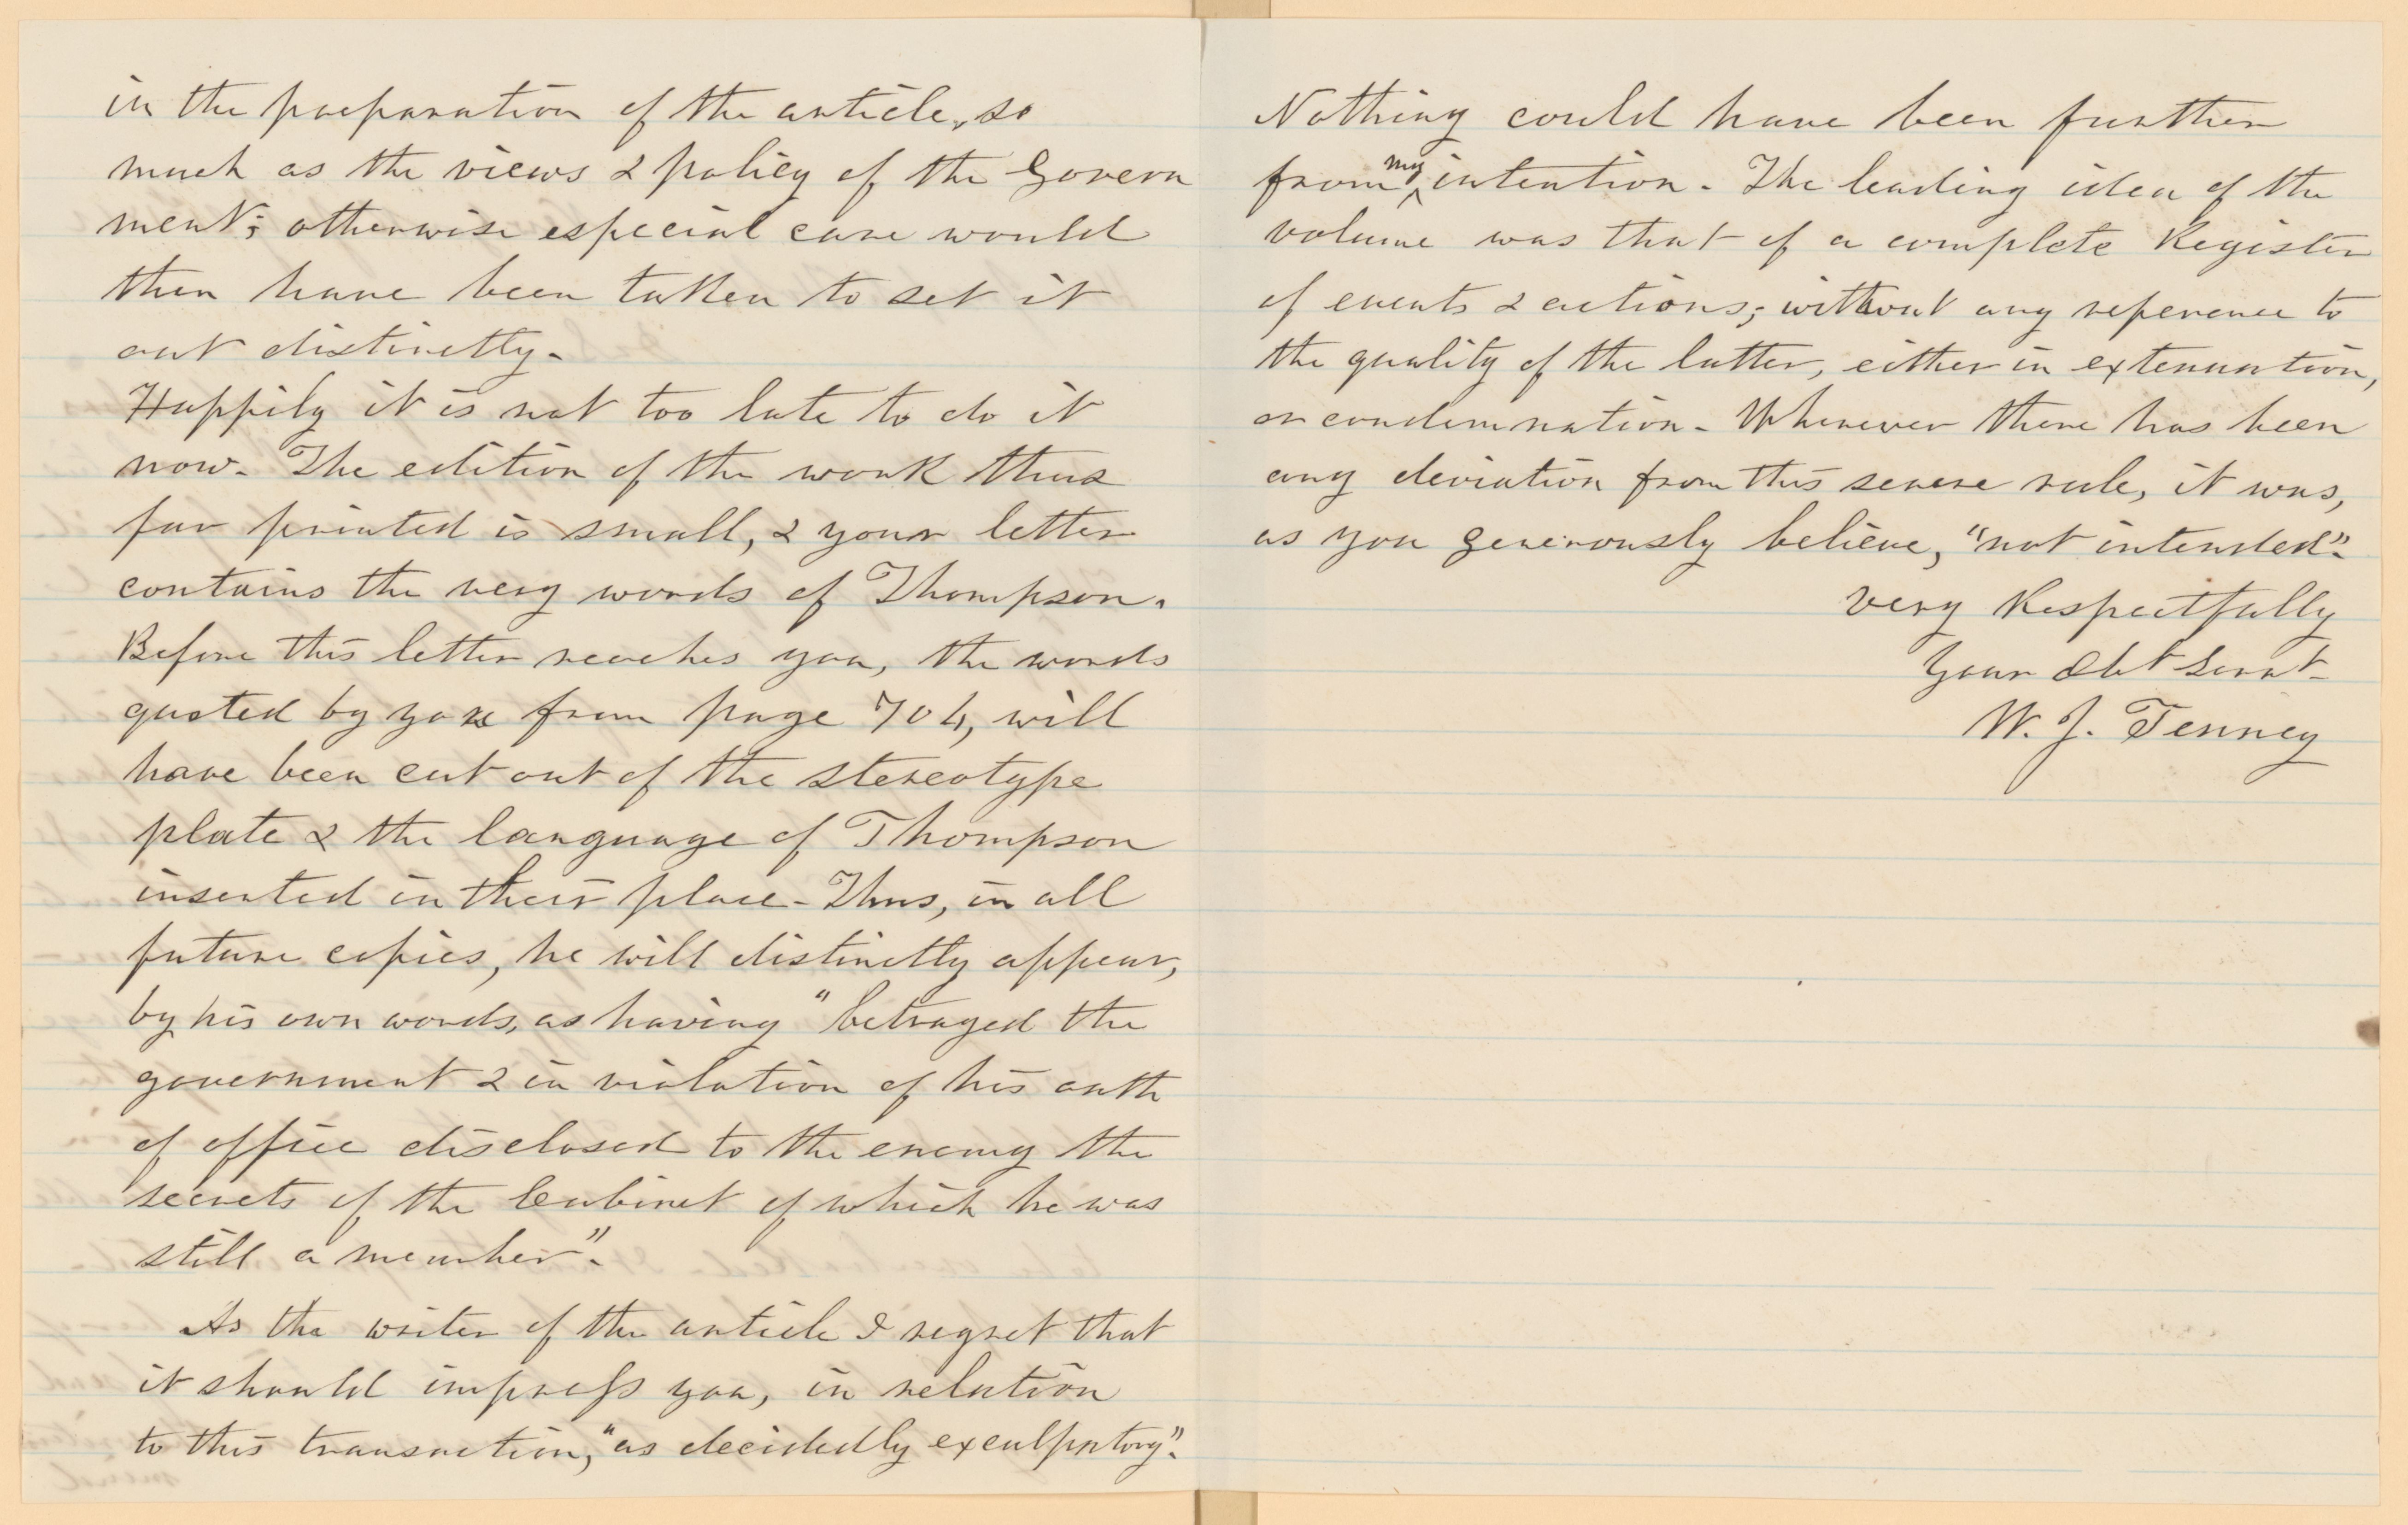 in the preparation of the article, so
much as the views & policy of the Govern
ment; otherwise especial care would
then have been taken to set it
out distinctly.
Happily it is not too late to do it
now. The edition of the work thus
far printed is small, & your letter
contains the very words of Thompson.
Before this letter reaches you, the words
quoted by you from page 704, will
have been cut out of the stereotype
plate & the language of Thompson
inserted in their place. Thus, in all
future copies, he will distinctly appear,
by his own words, as having "betrayed the
government & in violation of his oath
of office disclosed to the enemy the
secrets of the Cabinet of which he was
still a member".
As the writer of the article I regret that
it should impress you, in relation
to this transaction, "as decidedly exculpatory".
Nothing could have been further
from my intention. The leading idea of the
volume was that of a complete Register
of events & actions; without any reference to
the quality of the latter, either in extenuation,
or condemnation. Wherever there has been
any deviation from this severe rule, it was,
as you generously believe, "not intended".
very Respectfully
Your Obt Servt
W. J. Tenney